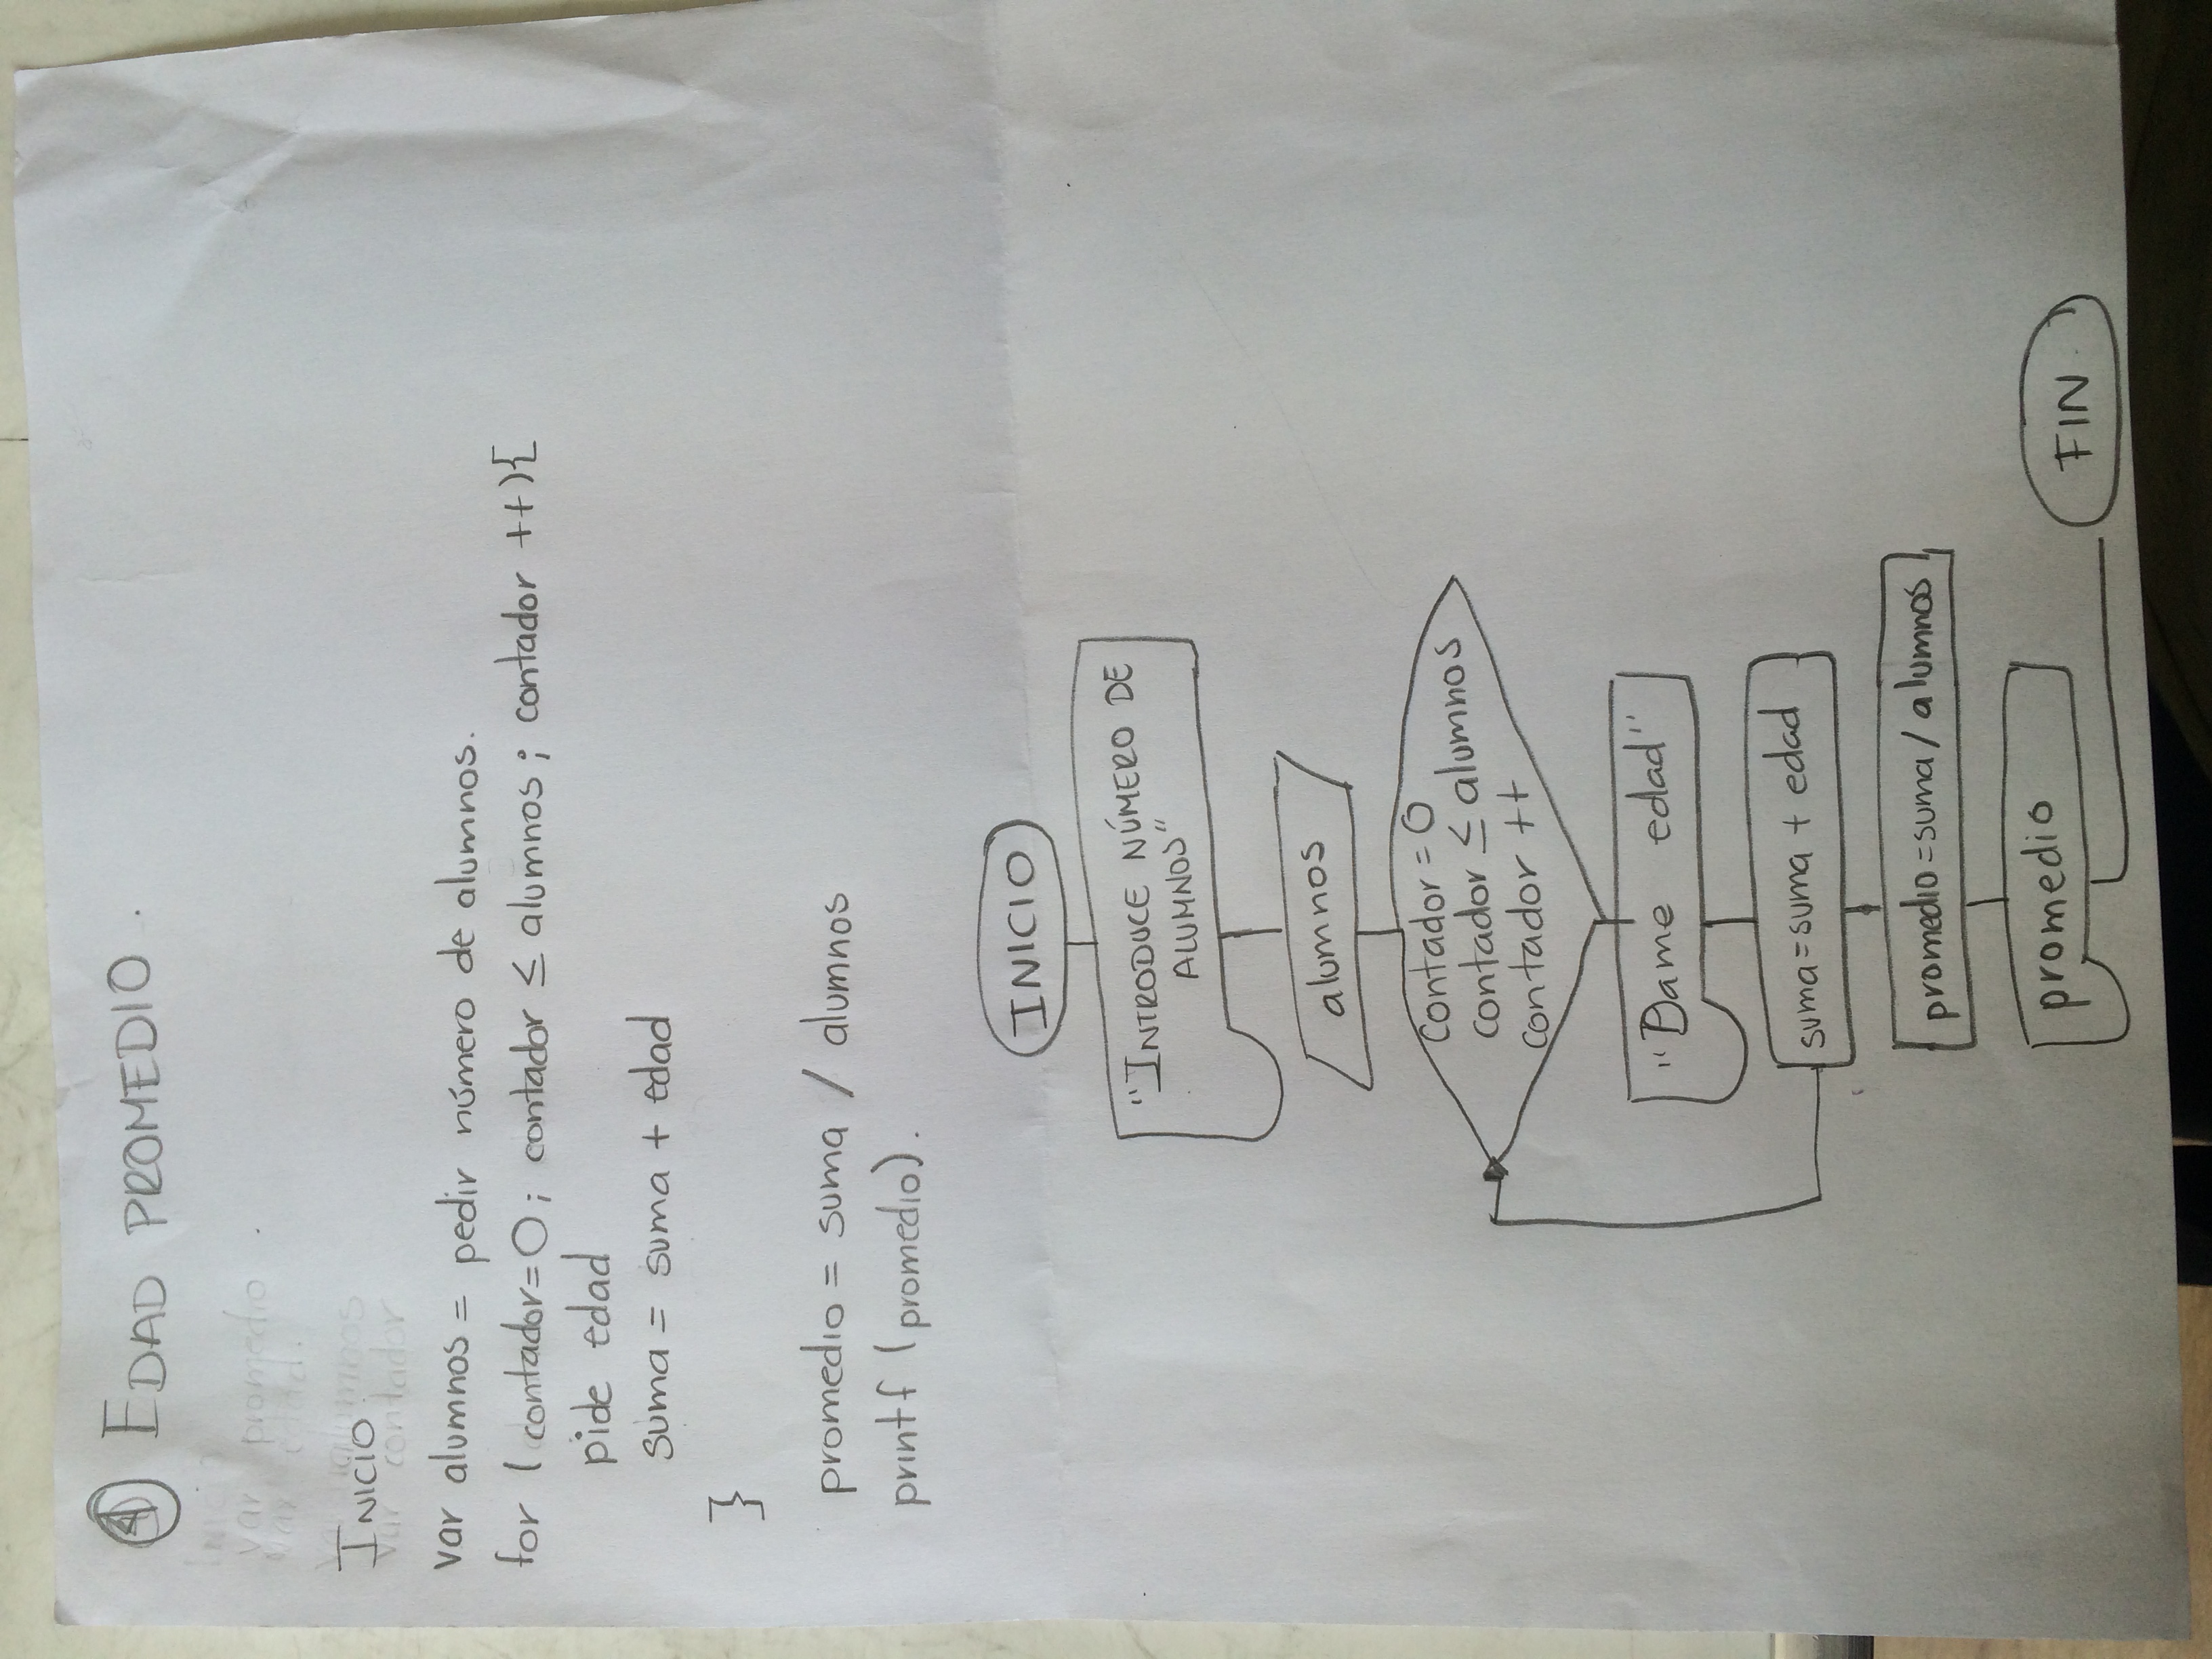 ④ EDAD PROMEDIO.
Inicio
var promedio
var edad.
var alumnos
INICIO
var contador
var alumnos = pedir número de alumnos.
for ( contador=0; contador ≤ alumnos; contador ++){
pide edad
suma = suma + edad
}
promedio = suma / alumnos
printf (promedio).
INICIO
"INTRODUCE NÚMERO DE
ALUMNOS"
alumnos
contador = 0
contador ≤ alumnos
contador ++
"Dame edad"
suma = suma + edad
promedio = suma / alumnos
promedio
FIN